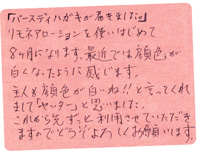 「バースディハガキが届きました」
リモスアローションを使いはじめて
8ヶ月になります。最近では顔色が
白くなったように感じます。
主人も顔色が白いね!!と言ってくれ
まして「ヤッター」と思いました。
これからも ずっと利用させていただき
ますのでどうぞよろしくお願いします。